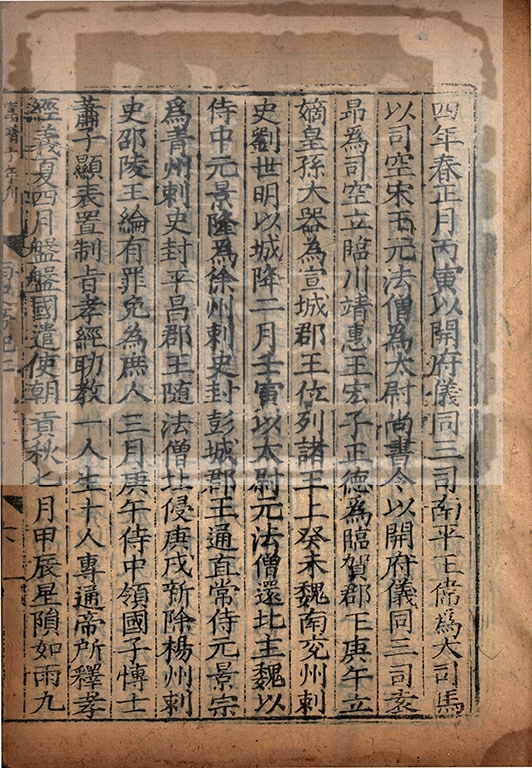 四年春正月丙寅以開府儀同三司南平王偉爲大司馬
以司空宋王元法僧爲太尉尚書令以開府儀同三司袁
昂爲司空立臨川靖惠王宏子正德爲臨賀郡王庚午立
嫡皇孫大器爲宣城郡王位列諸王上癸未魏南兖州刺
史劉世明以城降二月壬寅以太尉元法僧還北主魏以
侍中元景隆爲徐州刺史封彭城郡王通直常侍元景宗
爲青州刺史封平昌郡王隨法僧北侵庚戌新除楊州刺
史邵陵王綸有罪免爲庶人三月庚午侍中領國子愽士
蕭子顯表置制旨孝經助教一人生十人專通帝所釋孝
經義夏四月盤盤國遣使朝貢秋七月甲辰星隕如雨九